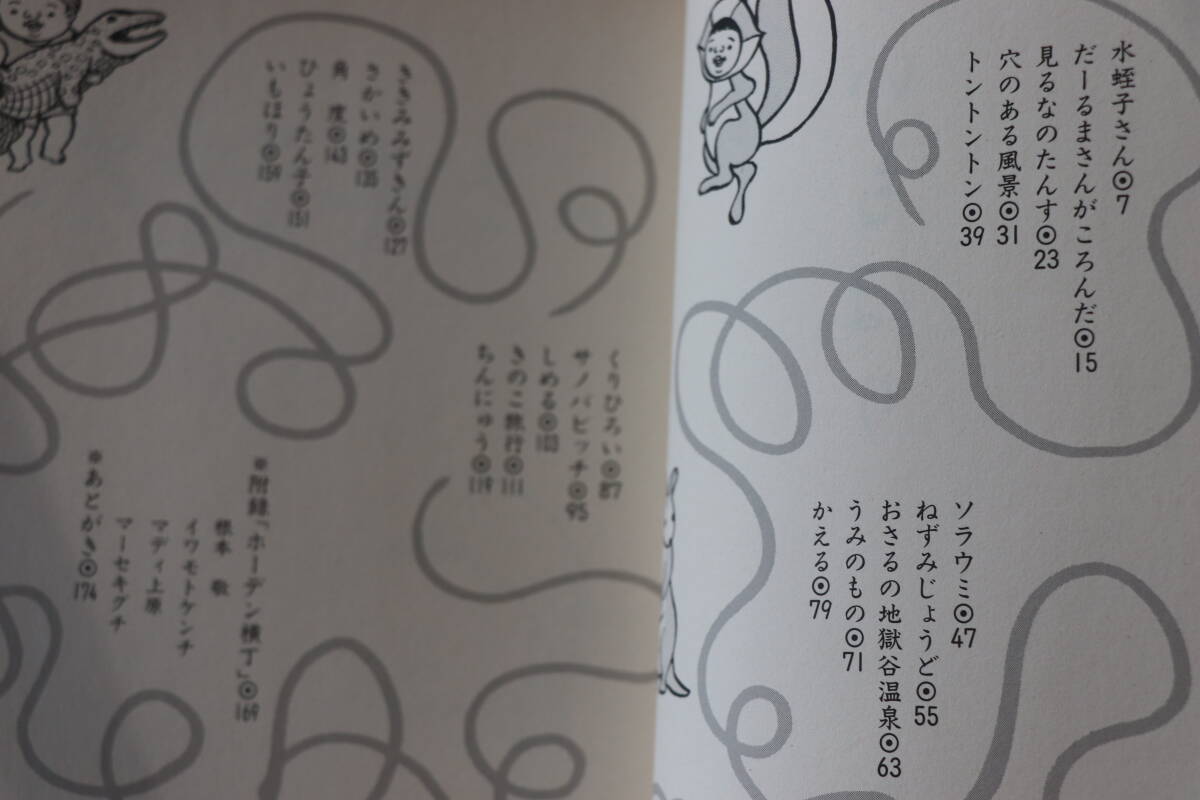 水蛭子さん◉7
だーるまさんがころんだ◉15
見るなのたんす◉23
穴のある風景◉31
トントントン◉39
ソラウミ◉47
ねずみじょうど◉55
おさるの地獄谷温泉◉63
うみのもの◉71
かえる◉79
くりひろい◉87
サノバビッチ◉95
しめる◉103
きのこ旅行◉111
ちんにゅう◉119
ききみみずきん◉127
さかいめ◉135
角度◉143
ひょうたん子◉151
いもほり◉159
※附録「ホーデン横丁」◉169
根本 敬
イワモトケンチ
マディ上原
マーセキグチ
※あとがき◉174